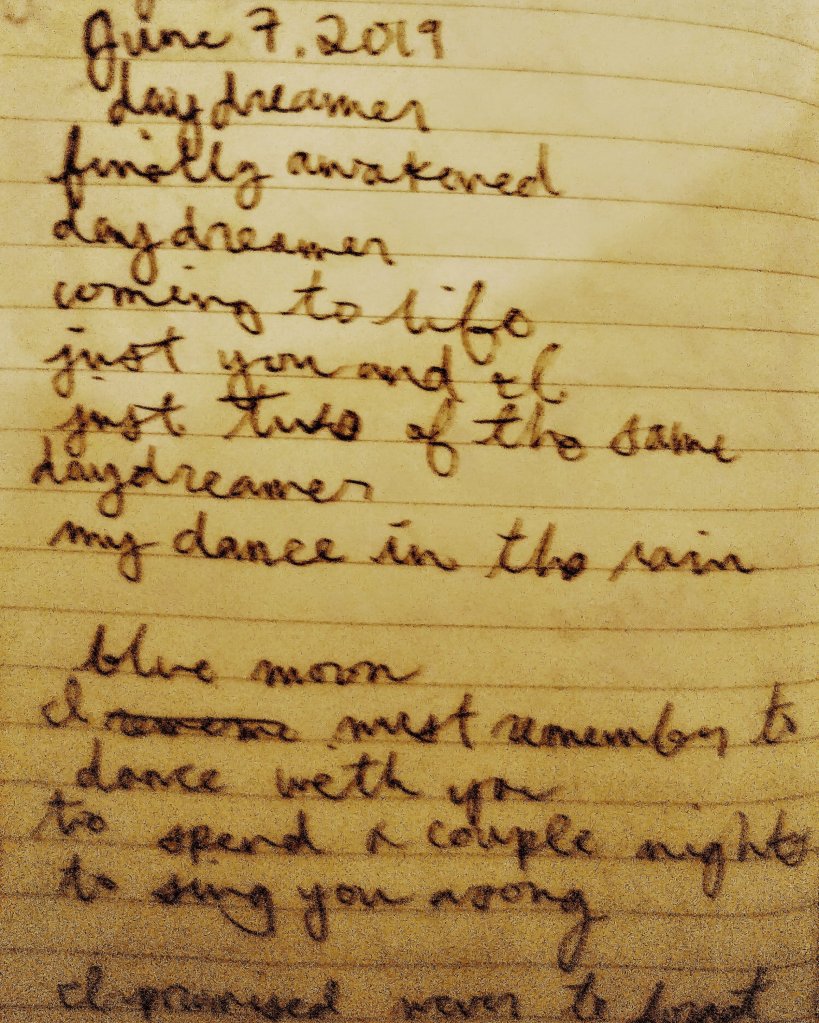 June 7, 2019
daydreamer
finally awakened
daydreamer
coming to life
just you and I
just two of the same
daydreamer
my dance in the rain
blue moon
I must remember to
dance with you
to spend a couple nights
to sing you a song
I promised never to